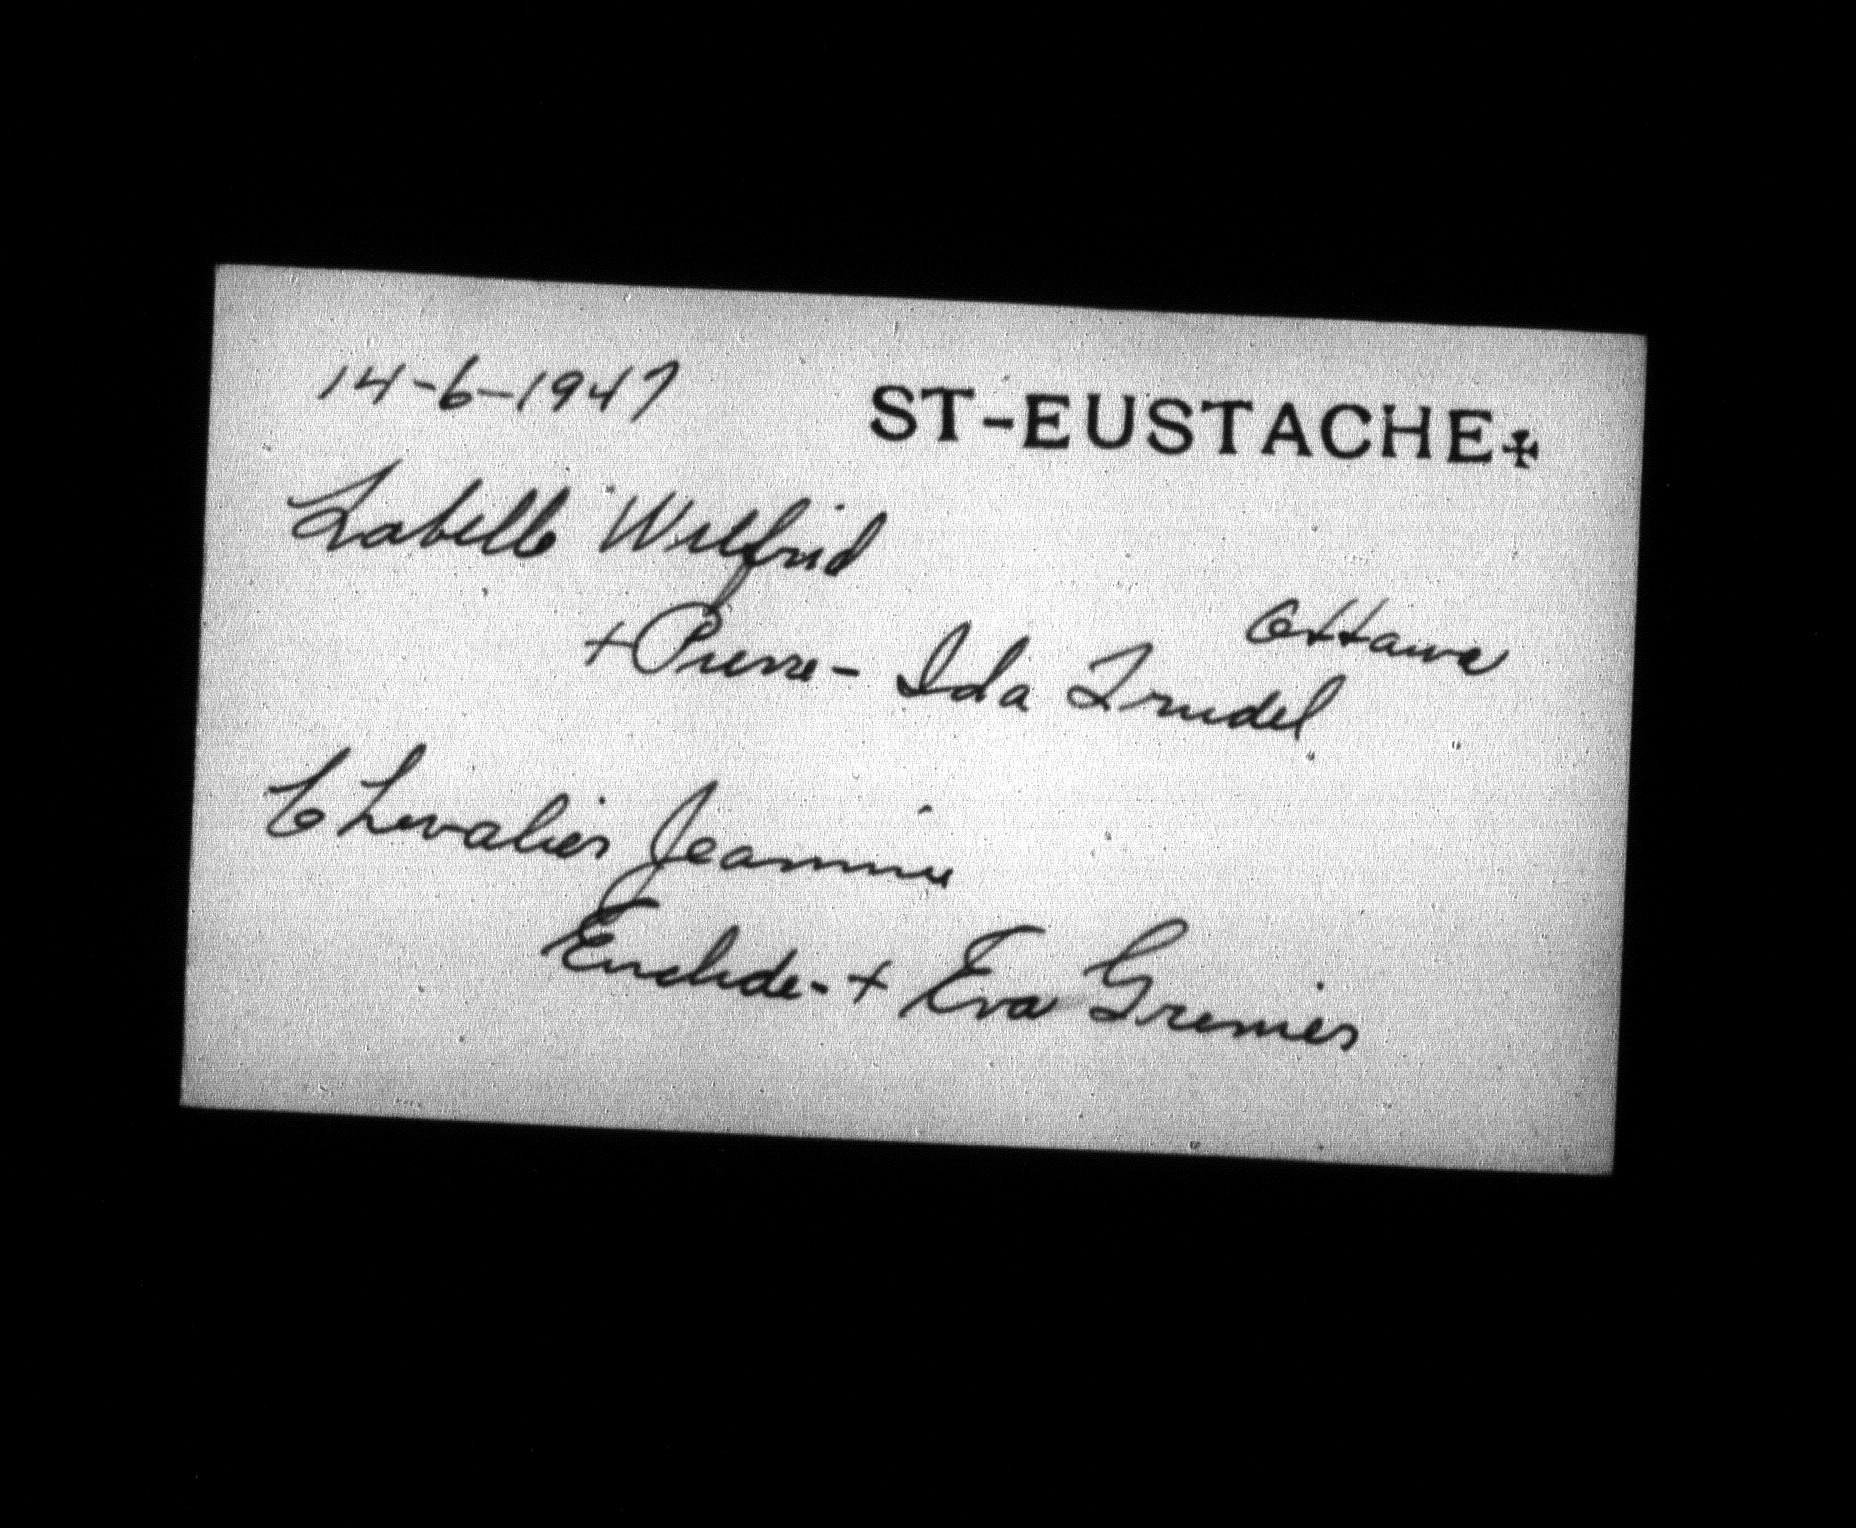 14-6-1947 ST-EUSTACHE✠
Labelle Wilfrid
Ottawa
+ Pierre - Ida Trudel
Chevalier Jeannine
Euclide - + Eva Grenier